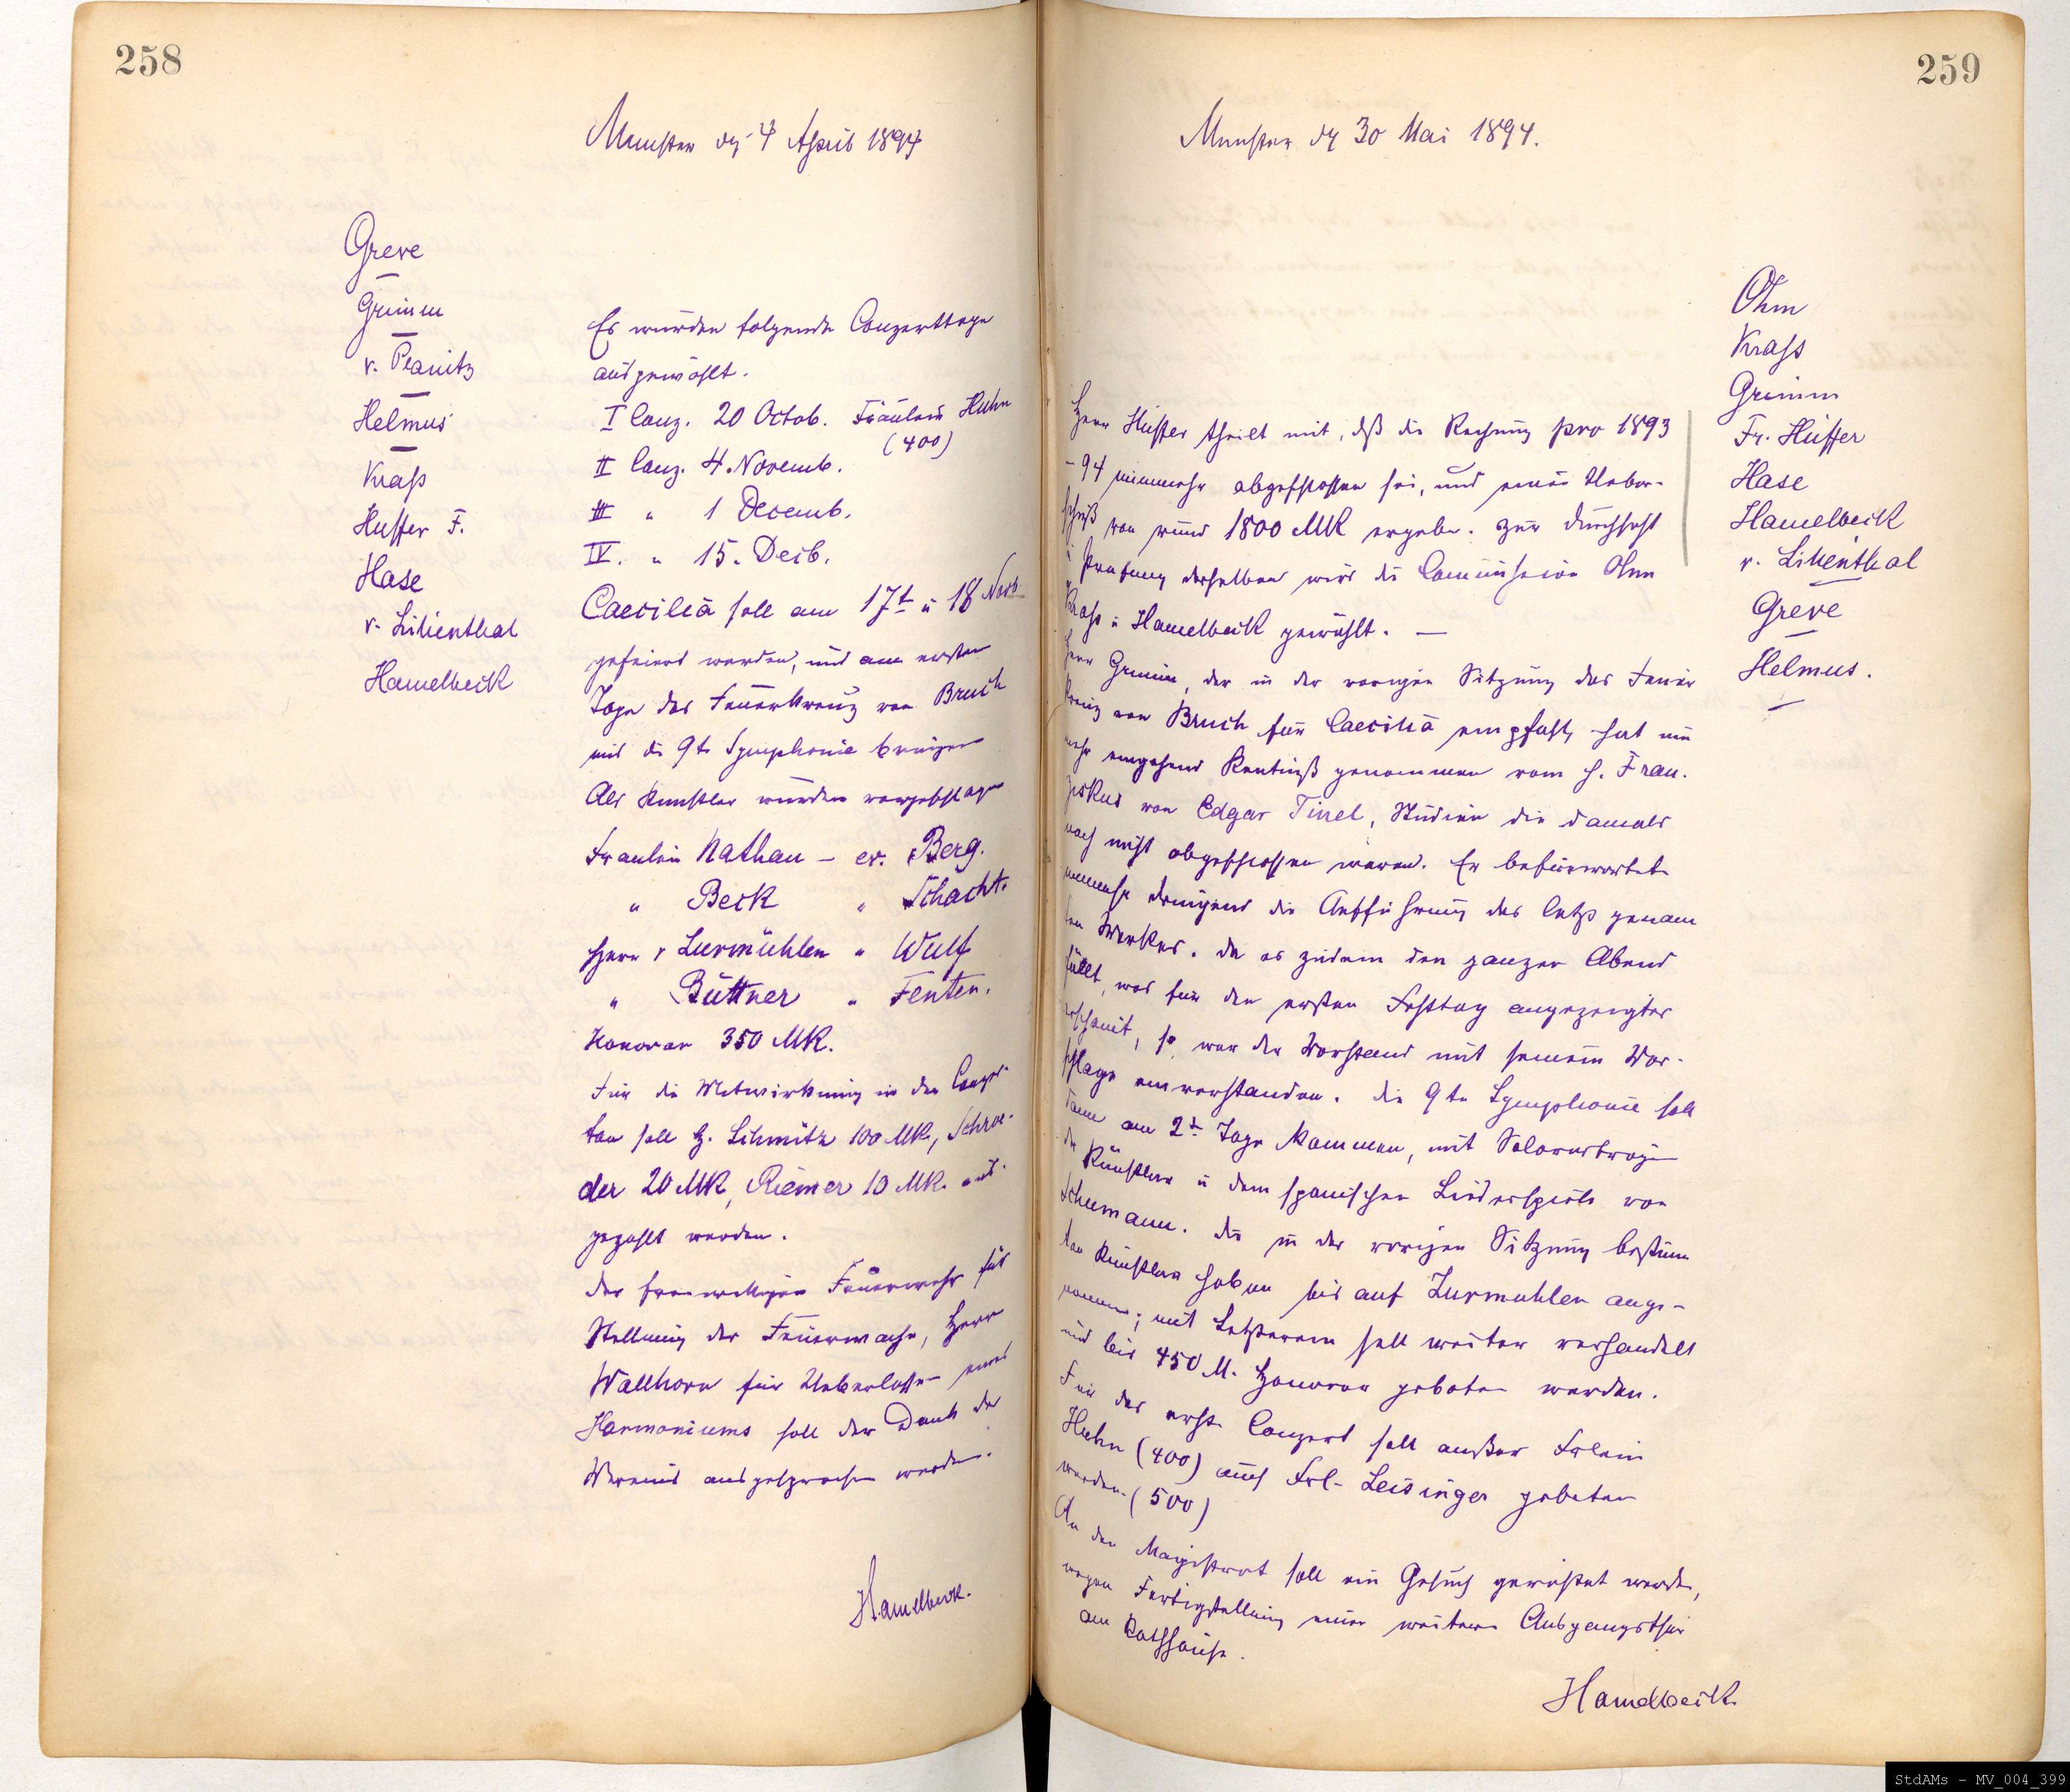 258
Munster dẽ 4 April 1894
Greve
Grimm
v. Planitz
Helmus
Krass
Huffer F.
Hase
v. Lilienthal
Hamelbeck
Es wurden folgende Conzerttage
ausgewählt.
I Conz. 20 Octob. Fräulein Huhn
(400)
II Conz. 4. Novemb.
III " 1 Decemb.
IV. " 15. Decb.
Caecilia soll am 17t u 18 Novb
gefeiert werden, und am ersten
Tage das Feuerkreuz von Bruch
und die 9te Symphonie bringen
Als Künstler wurden vorgeschlagen
Fraulein Nathan – ev. Berg.
" Beck " Schacht.
Herr v Zurmühlen " Wulf
" Büttner " Fenten.
Honorar 350 MK.
Für die Mitwirkung in den Conzer-
ten soll H. Schmitz 100 MK, Schroe-
der 20 MK, Riemer 10 MK. aus-
gezahlt werden.
Der freiwilligen Feuerwehr für
Stellung der Feuerwache, Herrn
Wallhorn für Ueberlassen eines
Harmoniums soll der Dank des
Vereins ausgesprochen werden.
Hamelbeck.
259
Munster dẽ 30 Mai 1894.
Ohm
Krass
Grimm
Fr. Hüffer
Hase
Hamelbeck
v. Lilienthal
Greve
Helmus.
Herr Hüffer theilt mit, daß die Rechnung pro 1893
–94 nunmehr abgeschlossen sei, und einen Ueber-
schuß von rund 1800 MK ergebe. Zur Durchsicht
u Prüfung derselben wird die Commission Ohm
Krass u Hamelbeck gewählt. —
Herr Grimm, der in der vorigen Sitzung das Feuer
kreuz von Bruch für Caecilia empfahl, hat nun
mehr eingehend Kentniß genommen vom h. Fran-
ziskus von Edgar Tinel, Studien die damals
noch nicht abgeschlossen waren. Er befürwortet
nunmehr dringend die Aufführung des letzt genann
ten Werkes. Da es zudem den ganzen Abend
füllt, was für den ersten Festtag angezeigter
erscheint, so war der Vorstand mit seinem Vor-
schlage einverstanden. Die 9te Symphonie soll
dann am 2t Tage kommen, mit Solovorträgen
der Künstler u dem spanischen Liederspiele von
Schumann. Die in der vorigen Sitzung bestimm
ten Künstler haben bis auf Zurmuhlen ange-
nommen; mit Letzterem soll weiter verhandelt
und bis 450 M. Honorar geboten werden.
Für das erste Conzert soll außer Frlein
Huhn (400) auch Frl. Leisinger gebeten
werden. (500)
An den Magistrat soll ein Gesuch gerichtet werden,
wegen Fertigstellung einer weitern Ausgangsthür
am Rathhause.
Hamelbeck
StdAMs - MV_004_399